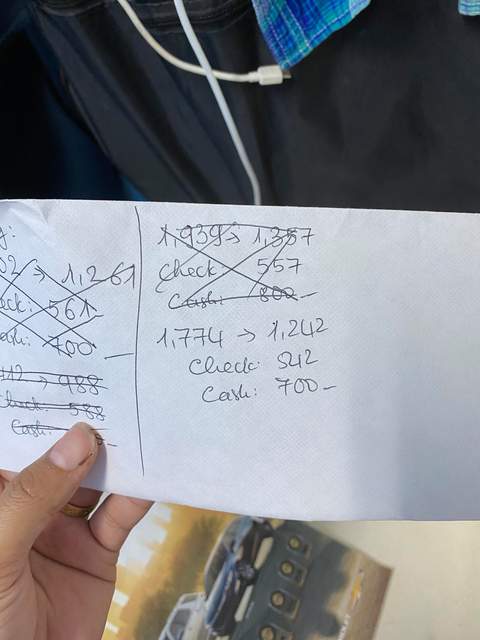 g:
02 → 1,261
eck: 561
ash: 700
412 → 988
Check: 588
Cash:
1,939 → 1,357
Check 557
Cash: 800
1,774 → 1,242
Check: 542
Cash: 700